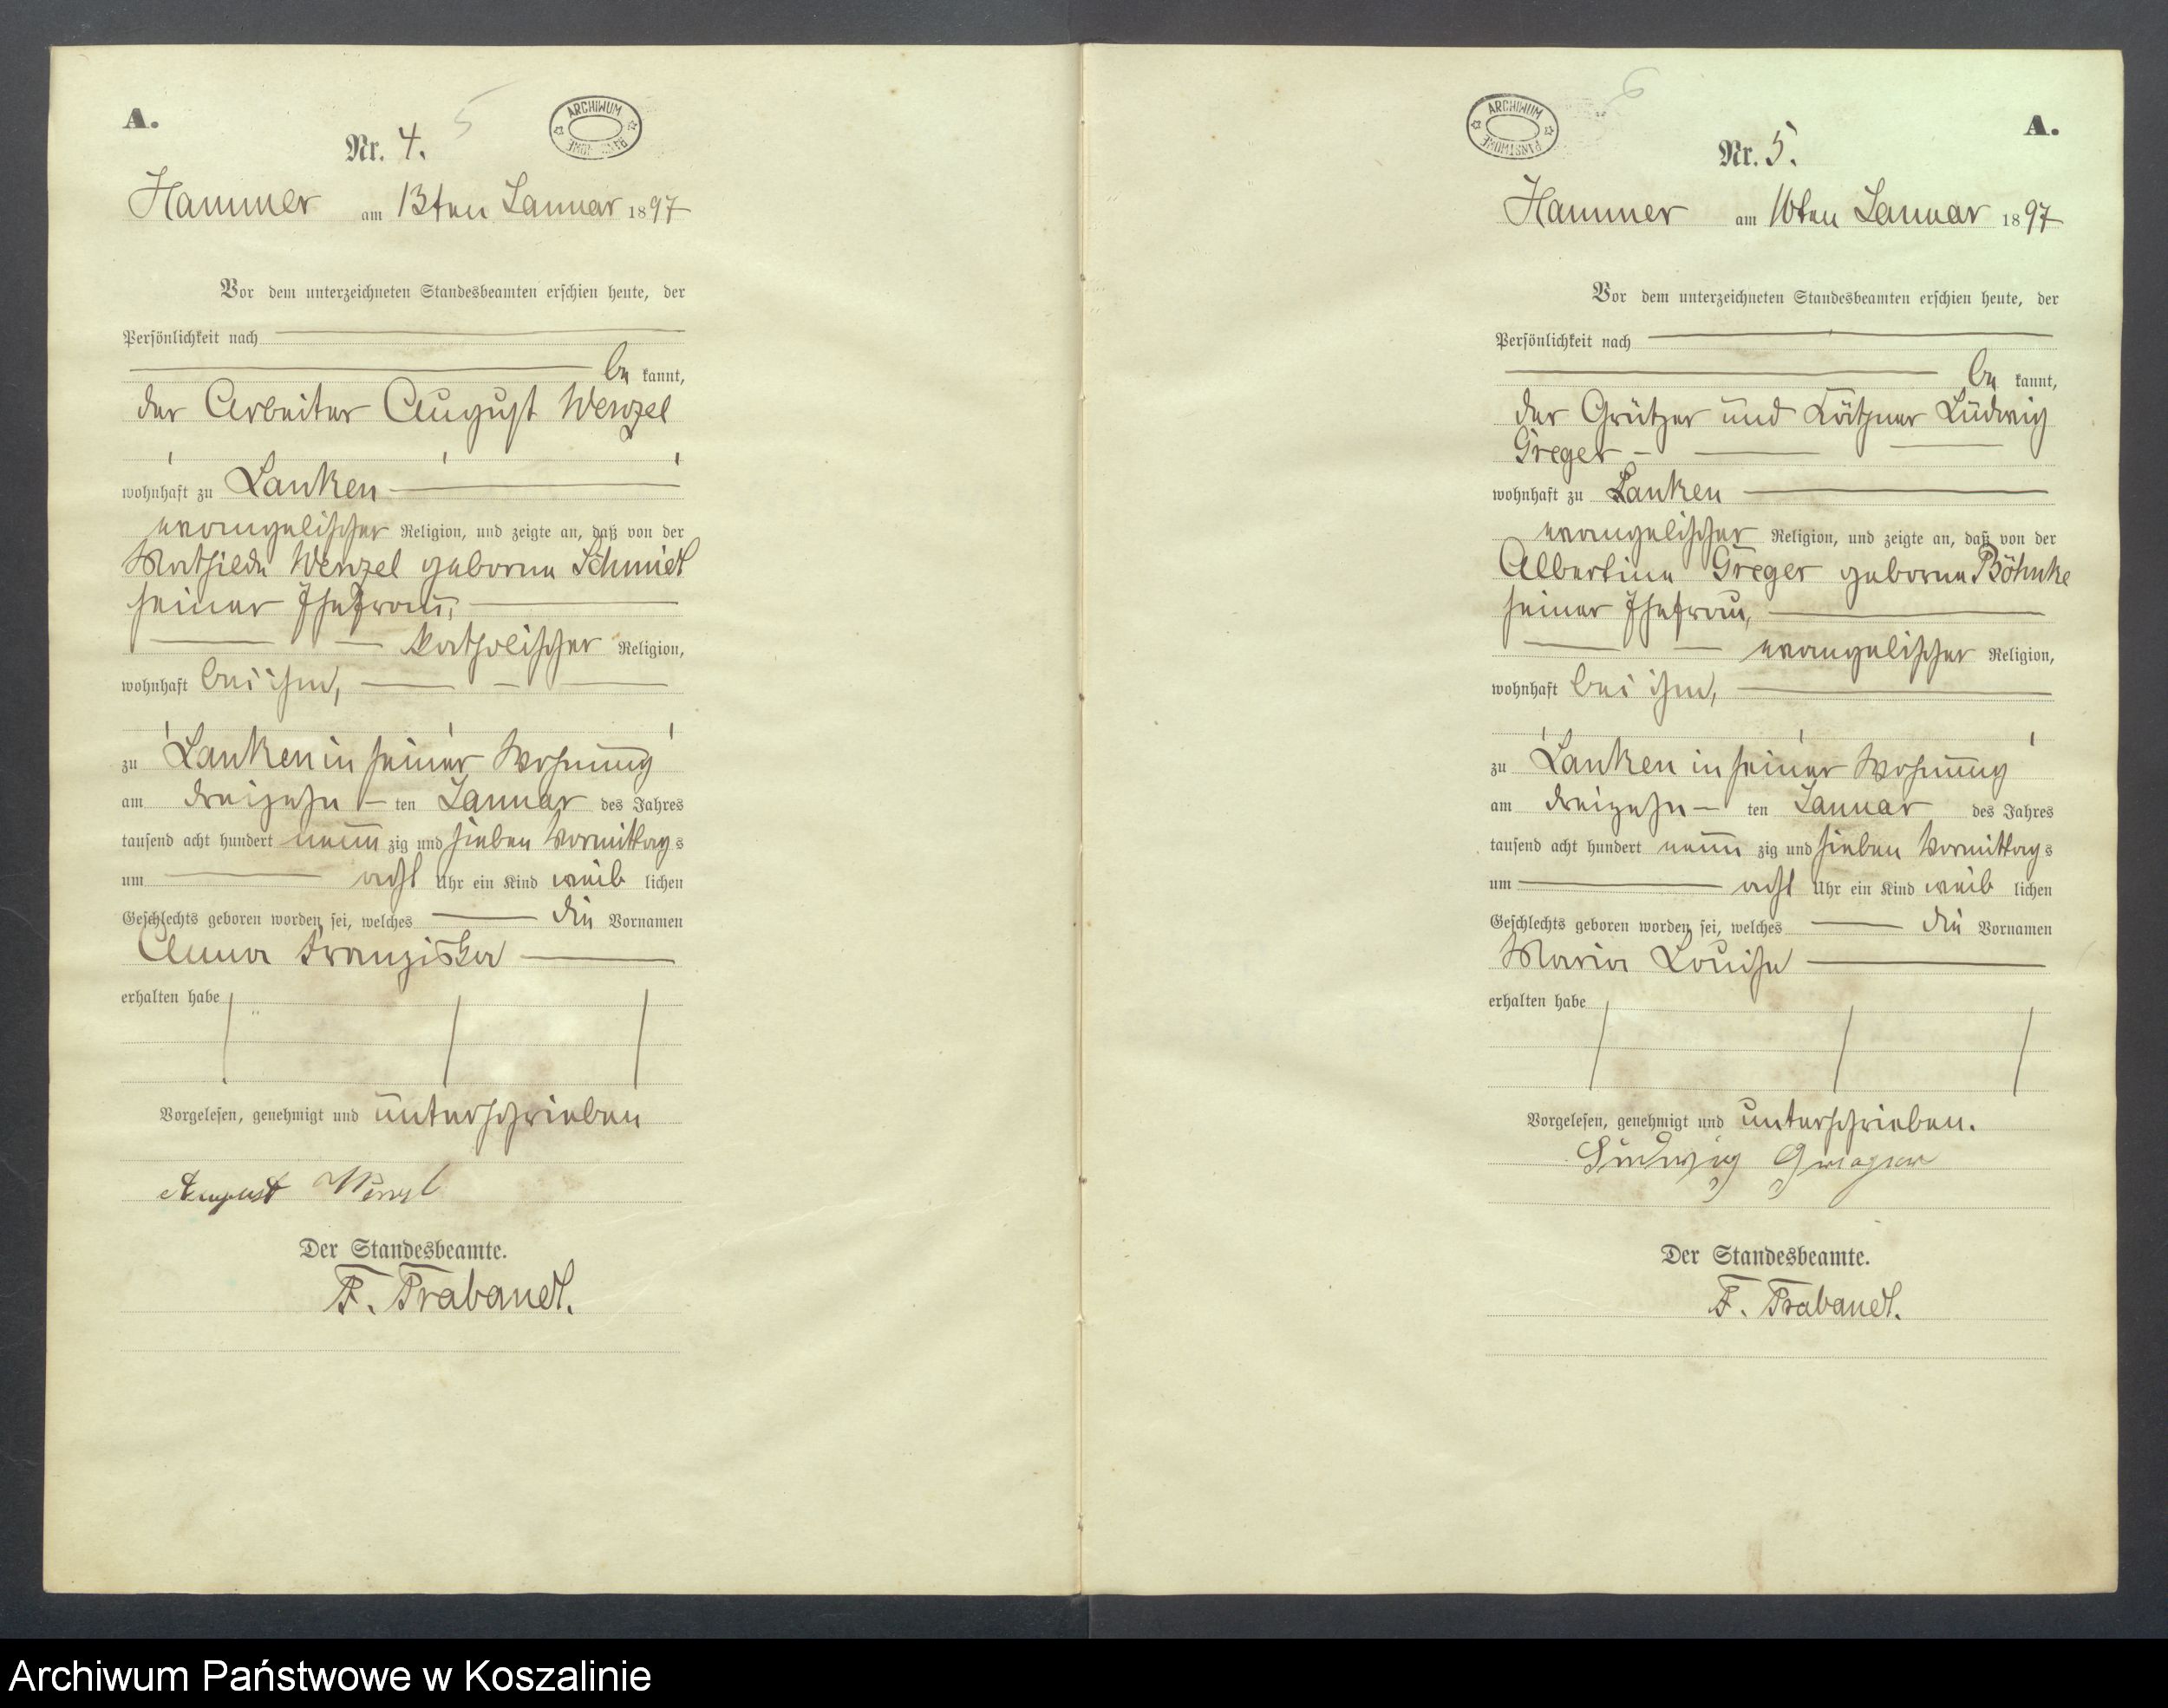 A.
Nr. 4.
5
ARCHIWUM
Hammer am 13ten Januar 1897
Vor dem unterzeichneten Standesbeamten erschien heute, der
Persönlichkeit nach
be kannt,
der Arbeiter August Wenzel
wohnhaft zu Lanken
evangelischer Religion, und zeigte an, daß von der
Mathilde Wenzel geborne Schmidt
seiner Ehefrau,
katholischer Religion,
wohnhaft bei ihm,
zu Lanken in seiner Wohnung
am dreizehn ten Januar des Jahres
tausend acht hundert neun zig und sieben Vormittags
um acht Uhr ein Kind weib lichen
Geschlechts geboren worden sei, welches die Vornamen
Anna Franziska
erhalten habe
Vorgelesen, genehmigt und unterschrieben
August Wenzel
Der Standesbeamte.
F. Trabandt.
6
ARCHIWUM
PAŃSTWOWE
A.
Nr. 5.
Hammer am 16ten Januar 1897
Vor dem unterzeichneten Standesbeamten erschien heute, der
Persönlichkeit nach
be kannt,
der Grützer und Kätner Ludwig
Greger
wohnhaft zu Lanken
evangelischer Religion, und zeigte an, daß von der
Albertine Greger geborne Böhnke
seiner Ehefrau,
evangelischer Religion,
wohnhaft bei ihm,
zu Lanken in seiner Wohnung
am dreizehn ten Januar des Jahres
tausend acht hundert neun zig und sieben Vormittags
um acht Uhr ein Kind weib lichen
Geschlechts geboren worden sei, welches die Vornamen
Maria Louise
erhalten habe
Vorgelesen, genehmigt und unterschrieben.
Ludwig Greger
Der Standesbeamte.
F. Trabandt.
Archiwum Państwowe w Koszalinie